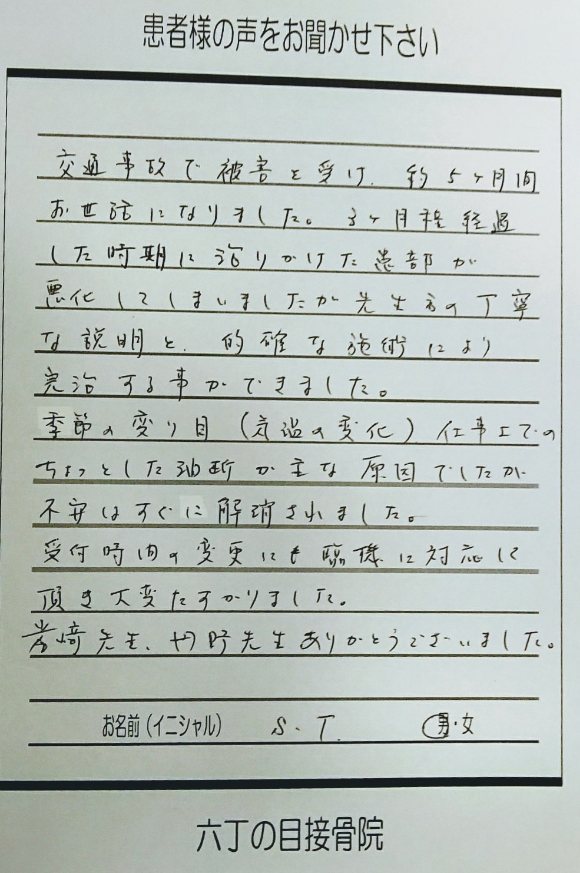 患者様の声をお聞かせ下さい
交通事故で被害を受け、約5ヶ月間
お世話になりました。3ヶ月程経過
した時期に治りかけた患部が
悪化してしまいましたが先生方の丁寧
な説明と、的確な施術により
完治する事ができました。
季節の変り目(気温の変化)仕事上での
ちょっとした油断が主な原因でしたが
不安はすぐに解消されました。
受付時間の変更にも臨機に対応して
頂き大変たすかりました。
岩﨑先生、丹野先生ありがとうございました。
お名前(イニシャル) S.T. 男・女
六丁の目接骨院